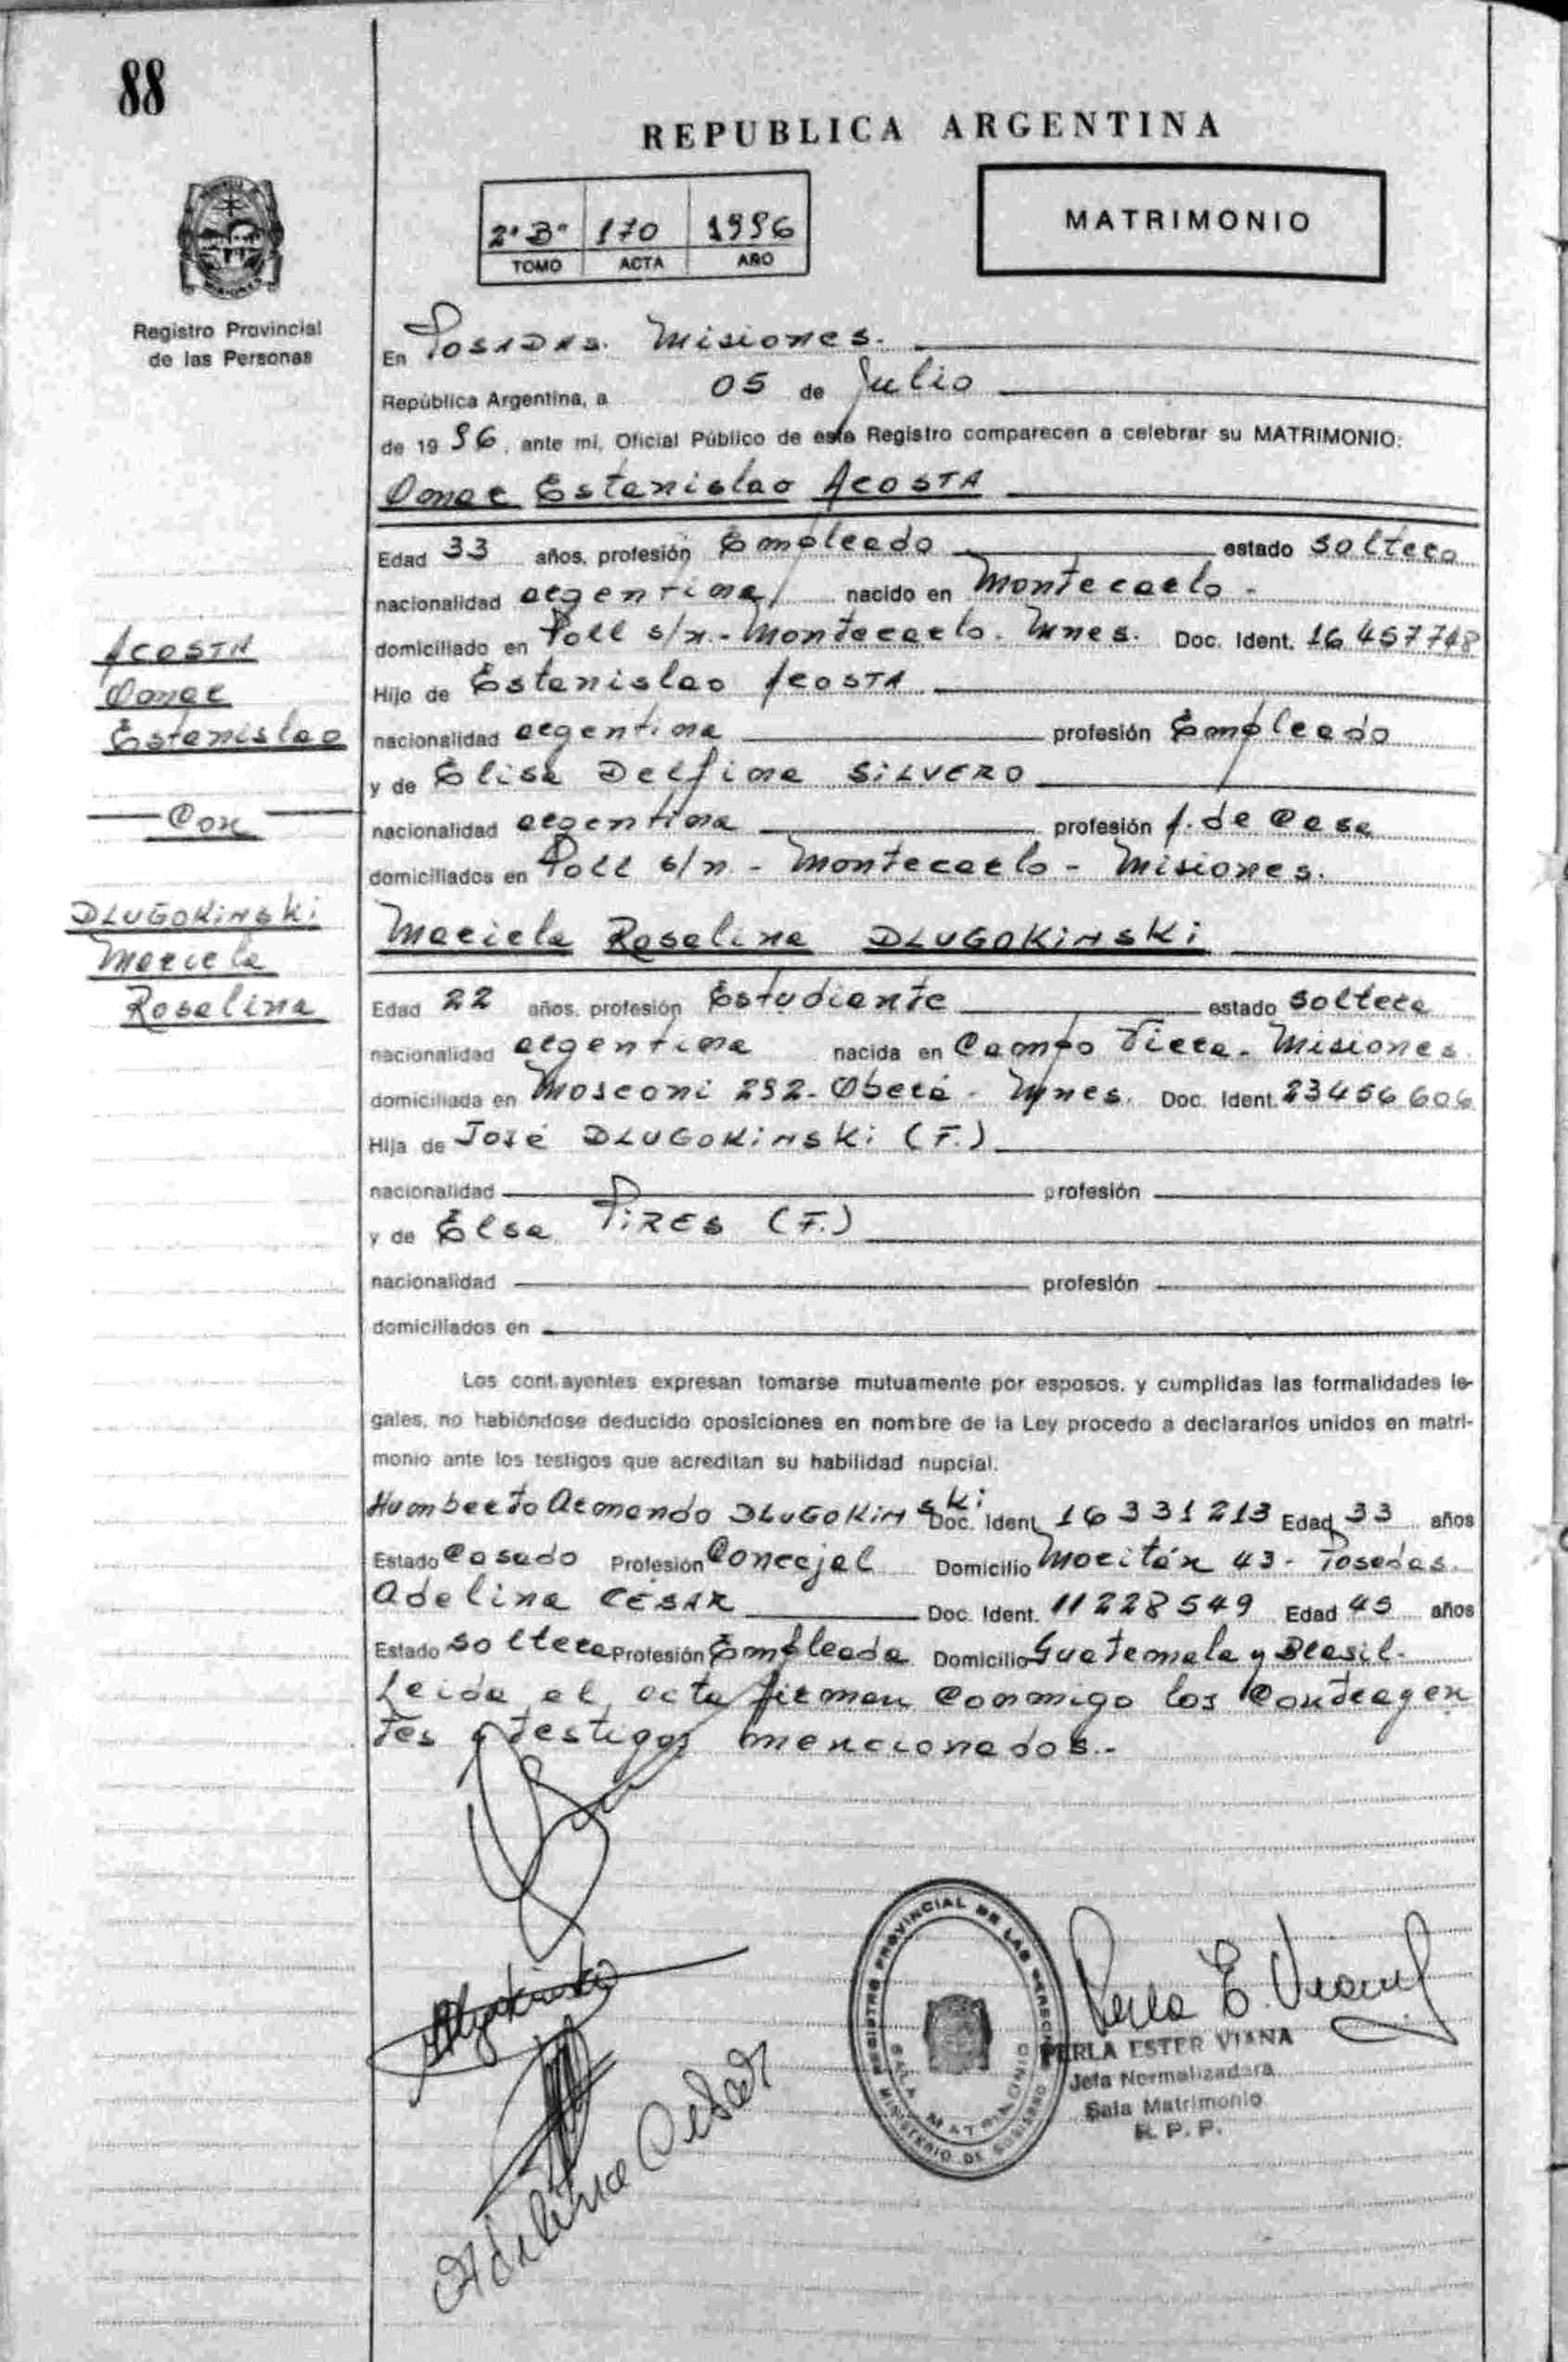 88
REPUBLICA ARGENTINA
2º Bº 170 1996
TOMO ACTA AÑO
MATRIMONIO
Registro Provincial
de las Personas
En POSADAS. Misiones.
República Argentina, a 05 de Julio
de 1996, ante mi, Oficial Público de este Registro comparecen a celebrar su MATRIMONIO:
Omar Estanislao ACOSTA
Edad 33 años, profesión Empleado estado soltero
nacionalidad argentina nacido en Montecarlo -
domiciliado en Poll s/n.- Montecarlo. Mnes. Doc. Ident. 16.457.748
Hijo de Estanislao ACOSTA
nacionalidad argentina profesión Empleado
y de Elisa Delfina SILVERO
nacionalidad argentina profesión A. de Casa
domiciliados en Poll s/n - Montecarlo - Misiones.
Mariela Roselina DLUGOKINSKI
Edad 22 años, profesión Estudiante estado soltera
nacionalidad argentina nacida en Campo Viera - Misiones.
domiciliada en Mosconi 292 - Oberá - Mnes. Doc. Ident. 23456606
Hija de José DLUGOKINSKI (F.)
nacionalidad profesión
y de Elsa PIRES (F.)
nacionalidad profesión
domiciliados en
ACOSTA
Omar
Estanislao
Con
DLUGOKINSKI
Mariela
Roselina
Los contrayentes expresan tomarse mutuamente por esposos, y cumplidas las formalidades le-
gales, no habiéndose deducido oposiciones en nombre de la Ley procedo a declararlos unidos en matri-
monio ante los testigos que acreditan su habilidad nupcial.
Humberto Armando DLUGOKINSKI Doc. Ident. 16331213 Edad 33 años
Estado Casado Profesión Concejal Domicilio Moritán 43 - Posadas.
Adelina CÉSAR Doc. Ident. 11228549 Edad 45 años
Estado soltera Profesión Empleada Domicilio Guatemala y Brasil.
Leida el acta firman conmigo los contrayen
tes y testigos mencionados.-
Adelina Cesar
REGISTRO PROVINCIAL DE LAS PERSONAS
SALA MATRIMONIO
MINISTERIO DE GOBIERNO
Perla E. Viana
PERLA ESTER VIANA
Jefa Normalizadora
Sala Matrimonio
R. P. P.